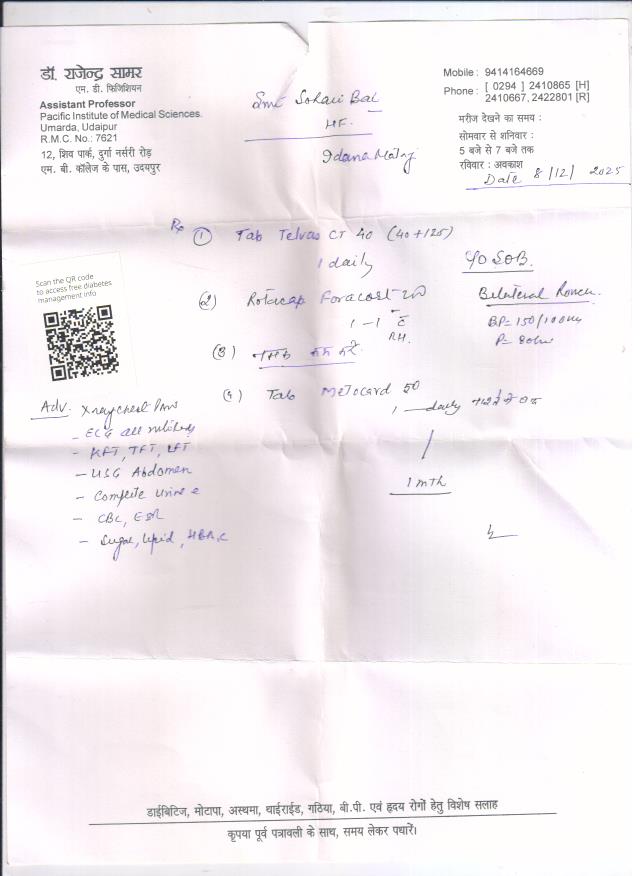 डॉ. राजेन्द्र सामर
एम. डी. फिजिशियन
Assistant Professor
Pacific Institute of Medical Sciences.
Umarda, Udaipur
R.M.C. No.: 7621
12, शिव पार्क, दुर्गा नर्सरी रोड़
एम. बी. कॉलेज के पास, उदयपुर
Mobile : 9414164669
Phone : [ 0294 ] 2410865 [H]
2410667, 2422801 [R]
मरीज देखने का समय :
सोमवार से शनिवार :
5 बजे से 7 बजे तक
रविवार : अवकाश
Date 8/12/ 2025
Smt Sohari Bai
Idana Mataj
Rx (1) Tab Telvas CT 40 (40+125)
1 daily
(2) Rotacap Foracort
1 - 1 c̄
RH.
(3) नमक कम करें
(4) Tab Metocard 50
1 daily
1 mth
C/o SOB.
Bilateral Ronchi
BP = 150/100
P =
Scan the QR code
to access free diabetes
management info
Adv. Xray chest PAV
- ECG all
- KFT, TFT, LFT
- USG Abdomen
- Complete urine
- CBC, ESR
- Sugar, Lipid, HBA1C
डाईबिटिज, मोटापा, अस्थमा, थाईराईड, गठिया, बी.पी. एवं हृदय रोगों हेतु विशेष सलाह
कृपया पूर्व पत्रावली के साथ, समय लेकर पधारें।